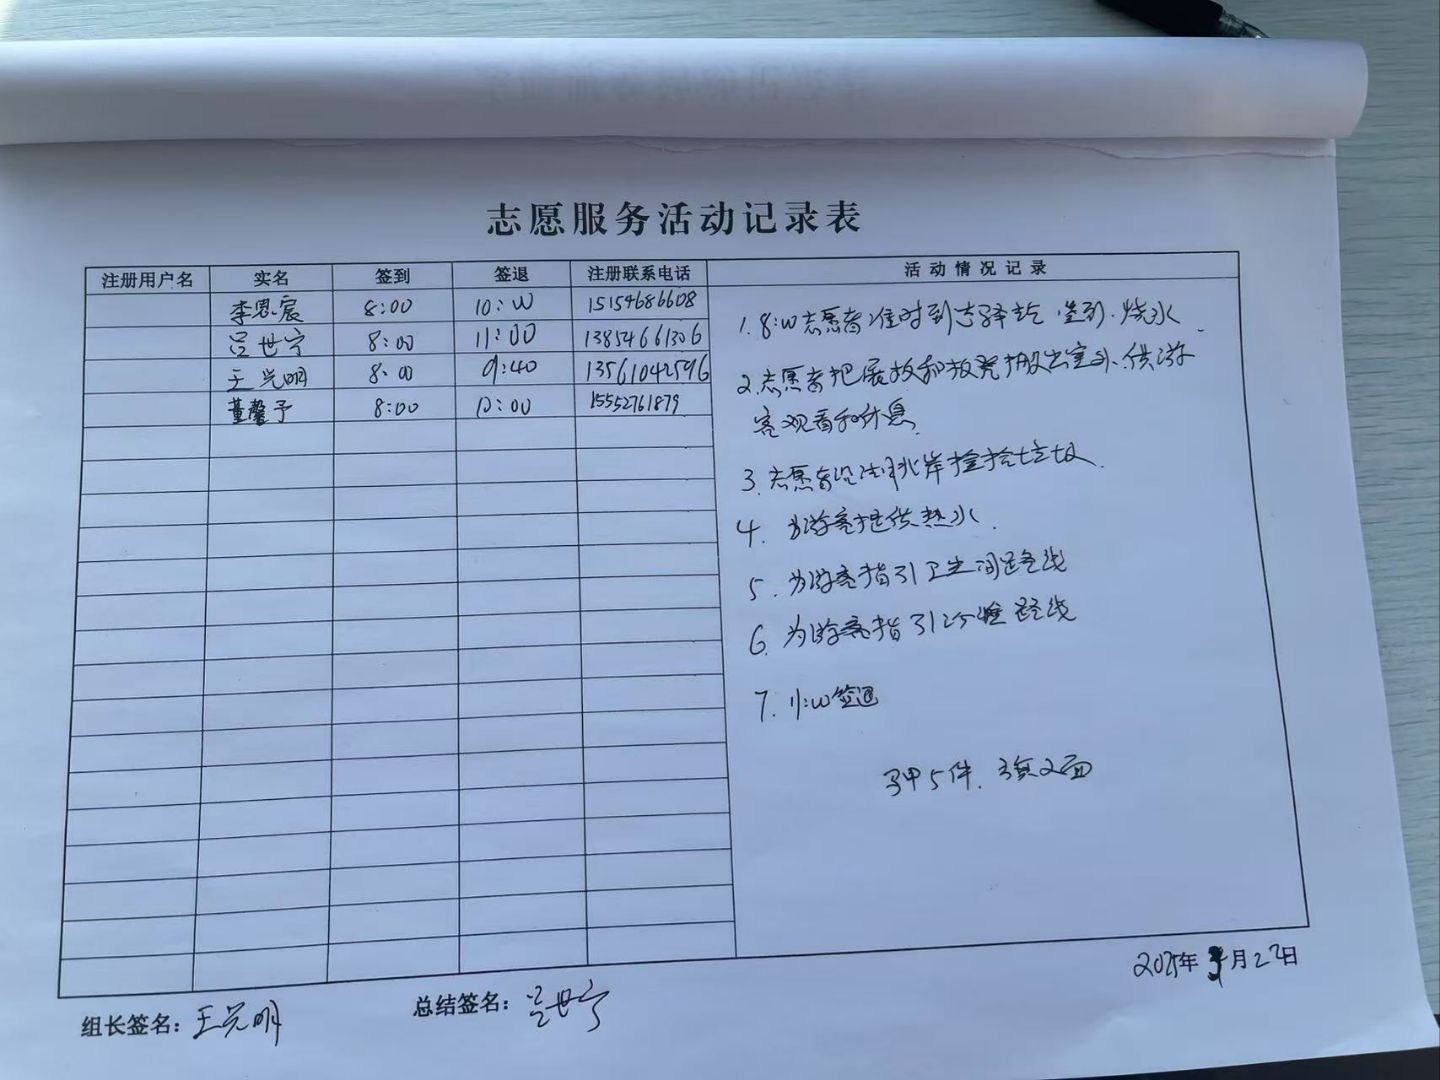 志愿服务活动记录表
注册用户名 实名 签到 签退 注册联系电话 活动情况记录
李恩宸 8:00 10:00 15154686608
吕世宁 8:00 11:00 13854661306
王光明 8:00 9:40 13561042596
董馨予 8:00 10:00 15552761879
1. 8:00志愿者准时到志愿驿站、签到、烧水.
2. 志愿者把展板和板凳搬出室外、供游
客观看和休息.
3. 志愿者沿河北岸捡拾垃圾.
4. 为游客提供热水.
5. 为游客指引卫生间路线
6. 为游客指引路线
7. 11:00签退
马甲5件、旗2面
2025年 月22日
组长签名: 王光明 总结签名: 吕世宁